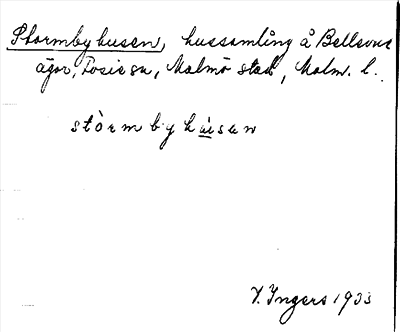 Stormbyhusen, hussamling å Bellevue
ägor, Fosie sn, Malmö stad, Malm. l.
stòrmbyhú̲sen
V. Ingers 1933